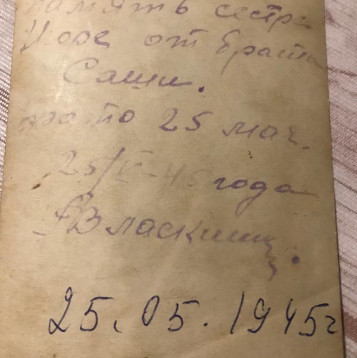 память сест
от брата
Саши.
25 мая.
25/V-45 года
Власкин
25.05.1945г